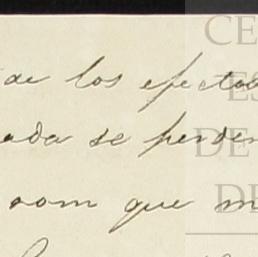 de los efectos
ada se perder
que m
CE
ES
DE
DE